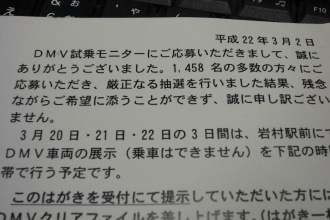 平成22年3月2日
DMV試乗モニターにご応募いただきまして、誠に
ありがとうございました。1,458名の多数の方々にご
応募いただき、厳正なる抽選を行いました結果、残念
ながらご希望に添うことができず、誠に申し訳ござい
ません。
3月20日・21日・22日の3日間は、岩村駅前にて
DMV車両の展示（乗車はできません）を下記の時間
帯で行う予定です。
このはがきを受付にて提示していただいた方には
DMVクリアファイルを差し上げます。（はがき一
F10